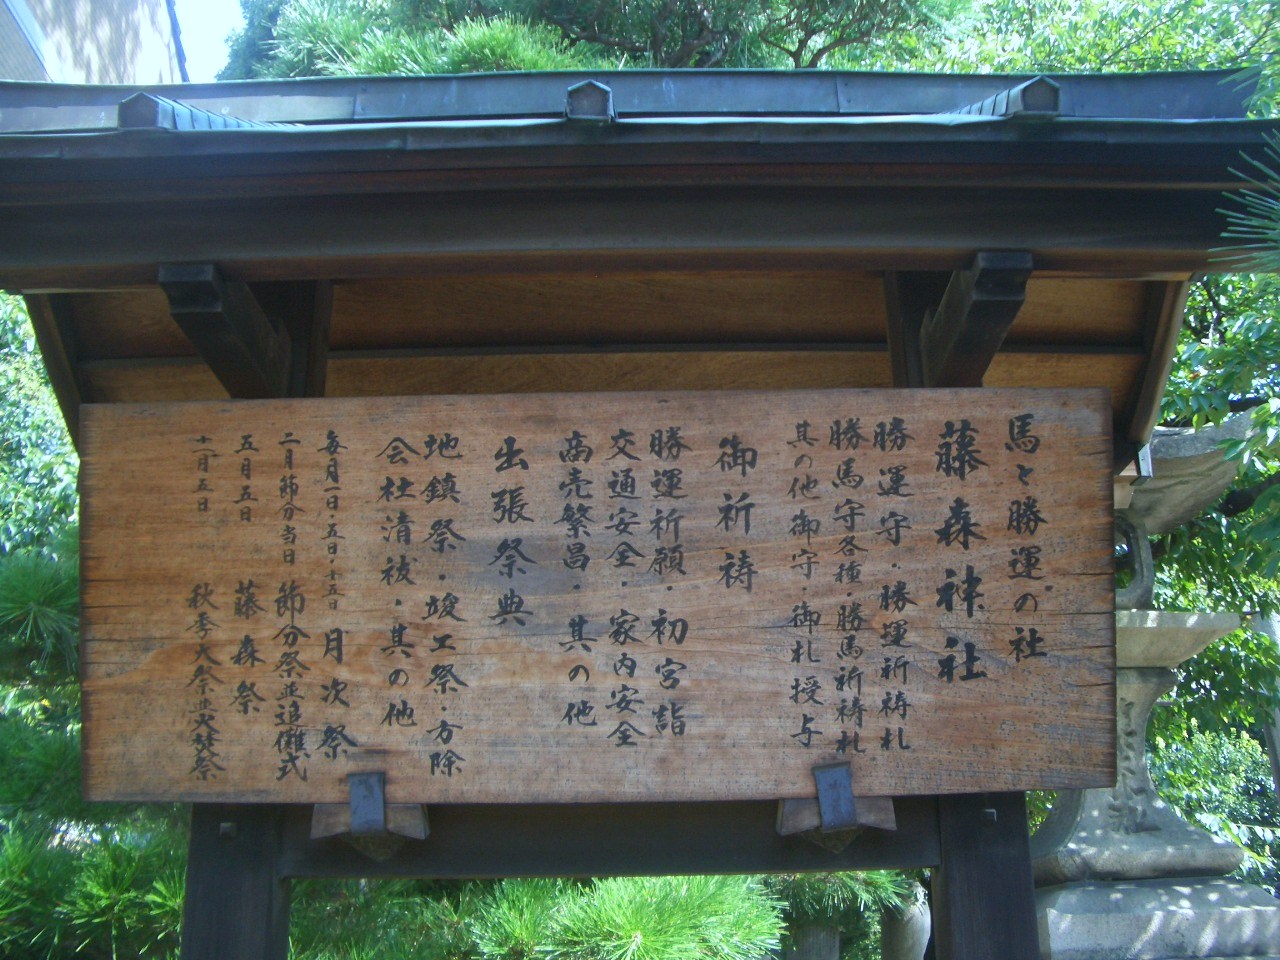 馬と勝運の社
藤森神社
勝運守・勝運祈祷札
勝馬守各種・勝馬祈祷札
其の他御守・御札授与
御祈祷
勝運祈願・初宮詣
交通安全・家内安全
商売繁昌・其の他
出張祭典
地鎮祭・竣工祭・方除
会社清祓・其の他
毎月一日・五日・十五日 月次祭
二月節分当日 節分祭並追儺式
五月五日 藤森祭
十一月五日 秋季大祭並火焚祭